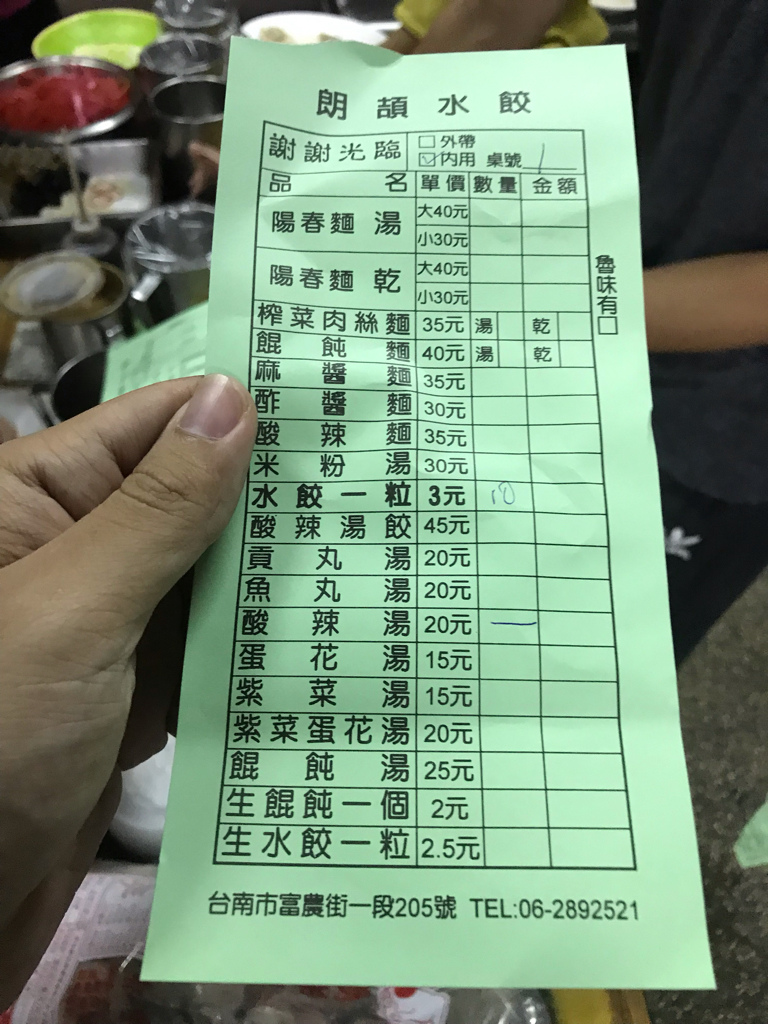 朗頡水餃
謝謝光臨 □外帶
☑內用 桌號 1
品名 單價 數量 金額
陽春麵 湯 大40元
小30元
陽春麵 乾 大40元
小30元
魯味有□
榨菜肉絲麵 35元 湯 乾
餛飩麵 40元 湯 乾
麻醬麵 35元
酢醬麵 30元
酸辣麵 35元
米粉湯 30元
水餃一粒 3元 10
酸辣湯餃 45元
貢丸湯 20元
魚丸湯 20元
酸辣湯 20元 一
蛋花湯 15元
紫菜湯 15元
紫菜蛋花湯 20元
餛飩湯 25元
生餛飩一個 2元
生水餃一粒 2.5元
台南市富農街一段205號 TEL:06-2892521